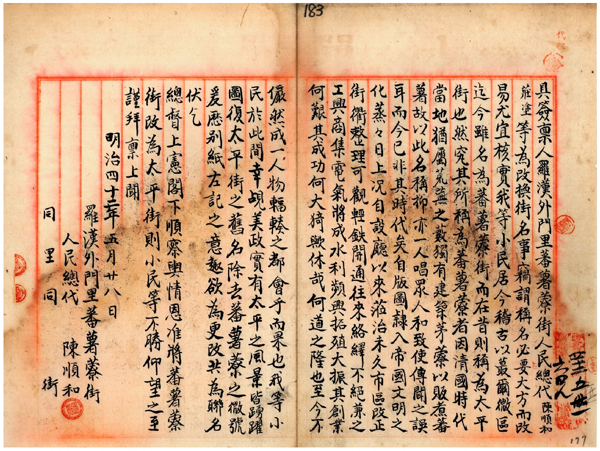 183
具簽稟人羅漢外門里蕃薯藔街人民總代陳順和
等為改換街名事竊謂稱名必要大方而改
易尤宜核實我等小民居今稽古以蕞爾微區
迄今雖名為蕃薯藔街而在昔則稱為太平
街也然究其所稱為蕃薯藔者因清國時代
當地猶屬荒蕪之藪獨有建築茅藔以販煮蕃
薯故以此名稱抑亦一人唱眾人和致使傳聞之誤
耳而今已非其時代矣自版圖隸入帝國文明之
化蒸々日上況自設廳以來蒞治未久市區改正
街衢整理可觀輕鉄開通往來絡繹不絕兼之
工興商集電氣將成水利頻興拓殖大振其創業
何艱其成功何大猗歟休哉何道之隆也至今不
儼然成一人物輻輳之都會乎而果也我等小
民於此間幸覩美政實有太平之風景皆踴躍
圖復太平街之舊名除去蕃薯藔之徽號
爰歷別紙左記之意思欲為更改共為聯名
伏乞
總督上憲閣下順察輿情恩准將蕃薯藔
街改為太平街則小民等不勝仰望之至
謹拜稟上聞
明治四十二年五月廿八日
羅漢外門里蕃薯藔街
人民總代 陳順和
同里同街
177